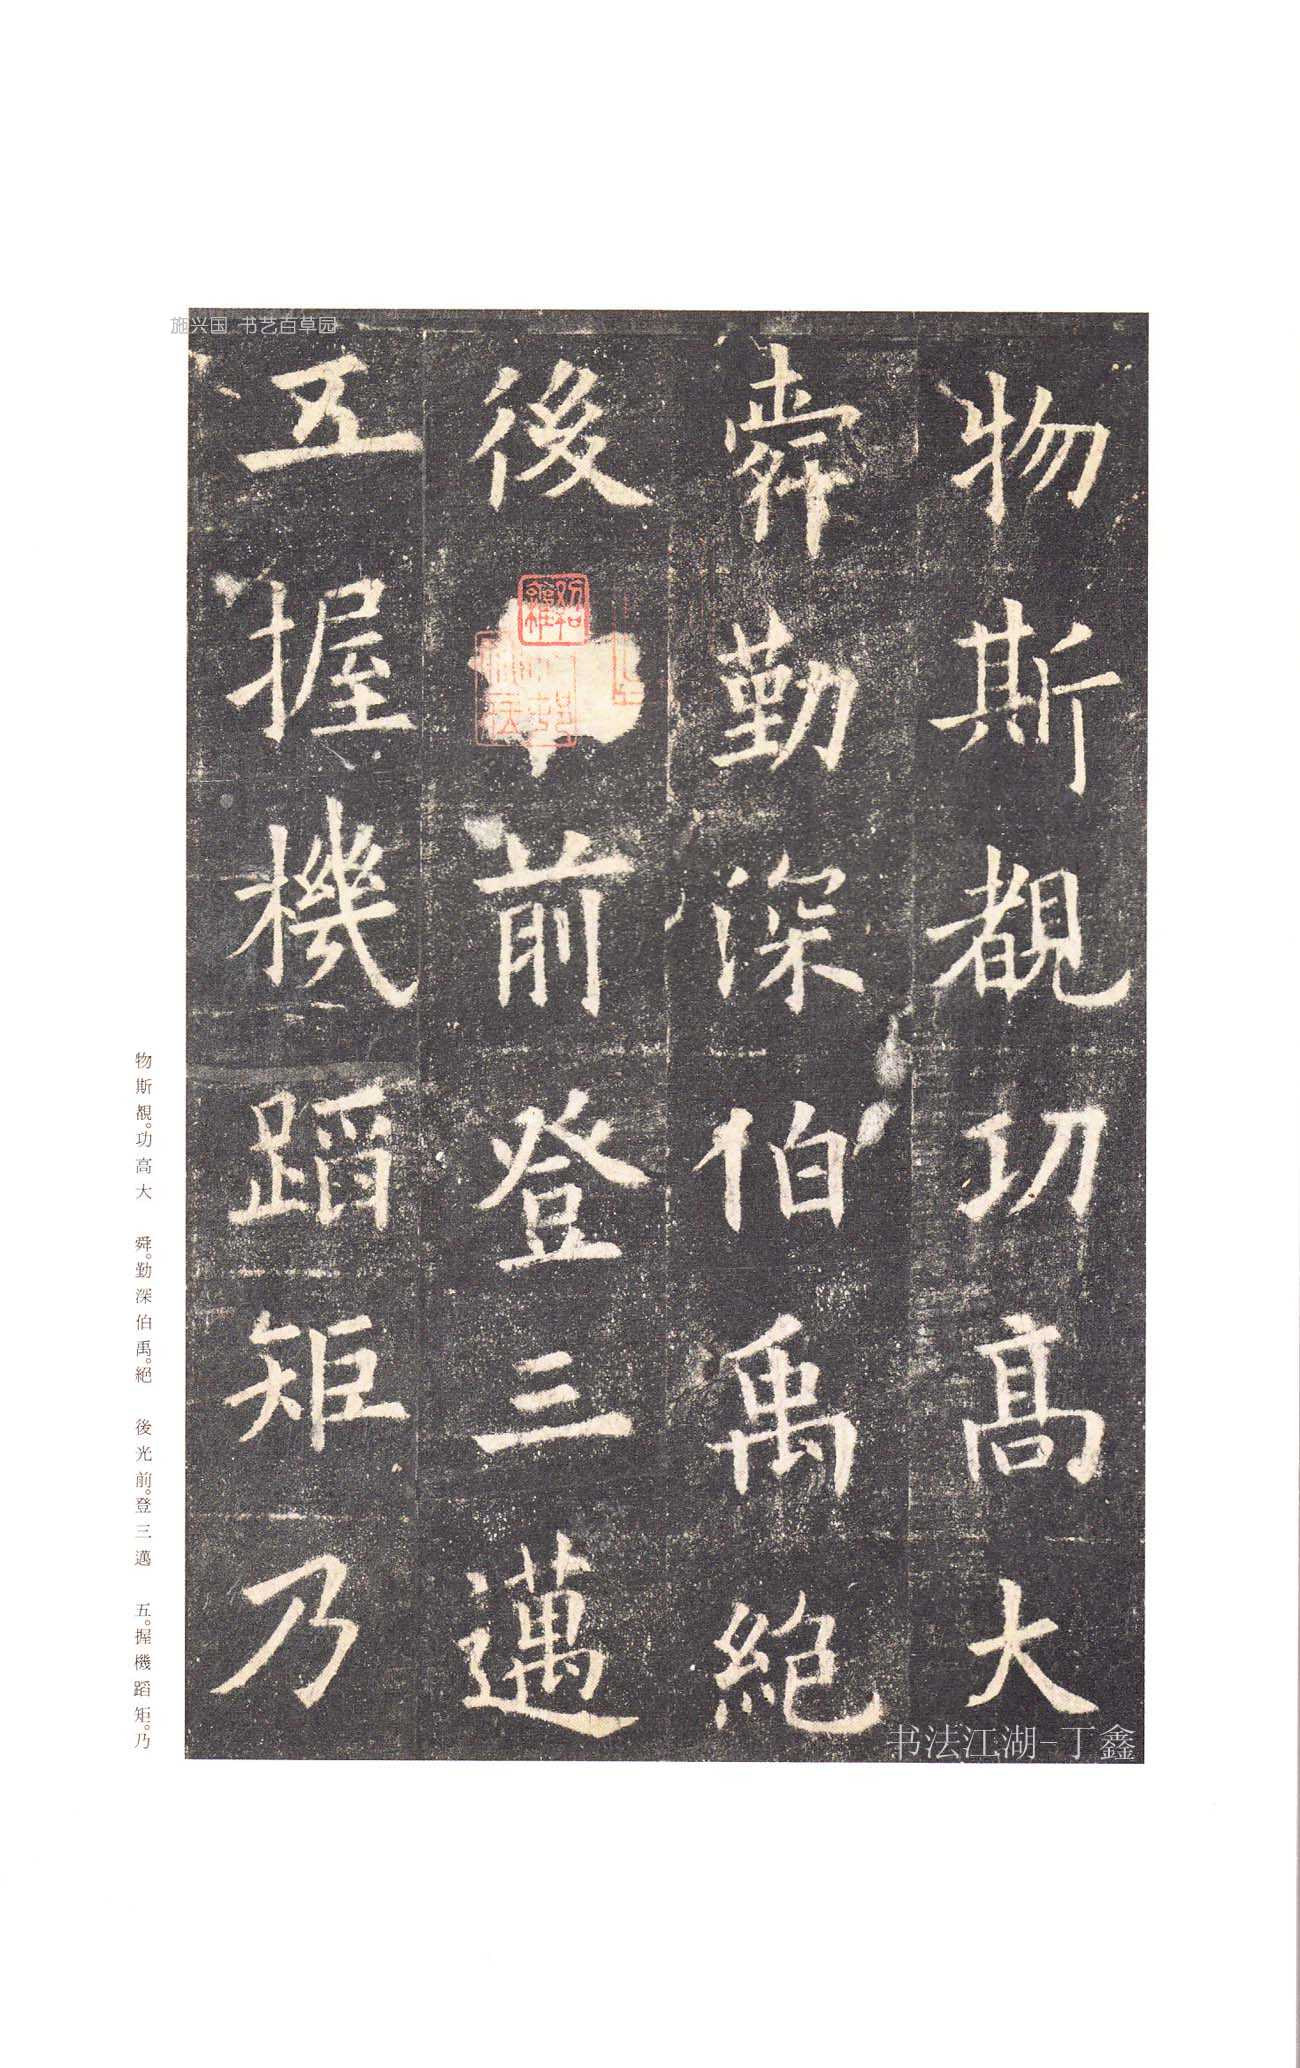 物斯覩功高大
舜勤深伯禹絕
後前登三邁
五握機蹈矩乃
物斯覩。功高大 舜。勤深伯禹。絕 後光前。登三邁 五。握機蹈矩。乃
施兴国 书艺百草园
书法江湖-丁鑫